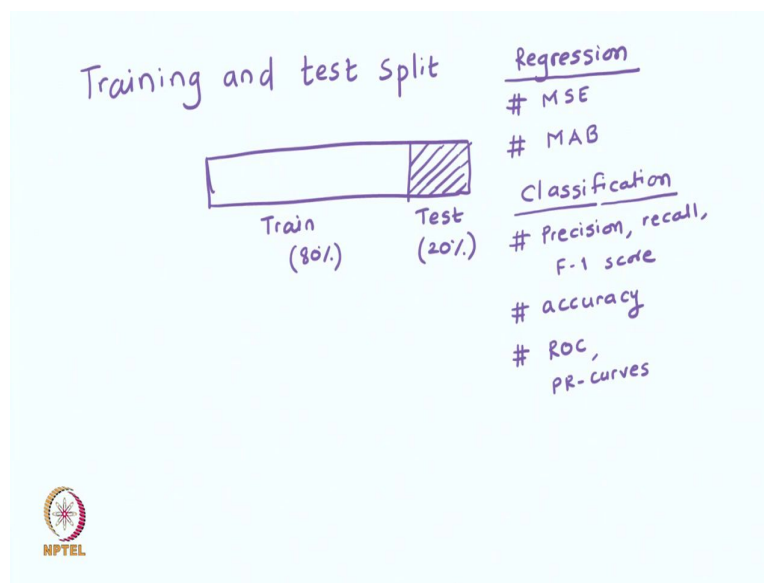 Training and test split
Train
(80%)
Test
(20%)
Regression
# MSE
# MAB
Classification
# Precision, recall,
F-1 score
# accuracy
# ROC,
PR-curves
NPTEL